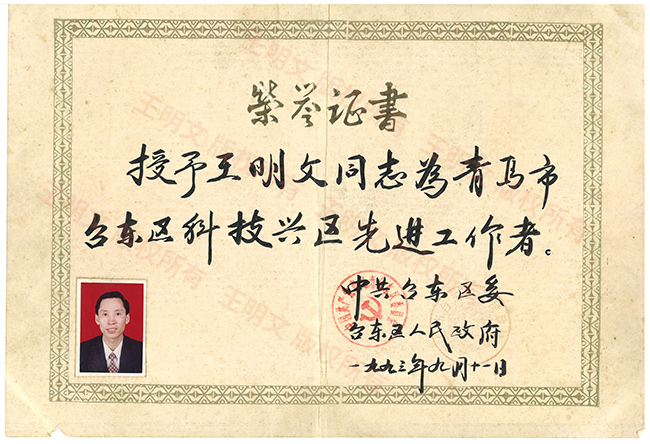 荣誉证書
授予王明文同志為青岛市
台东区科技兴区先进工作者。
中共台东区委
台东区人民政府
一九九三年九月十一日
王明文 版权所有